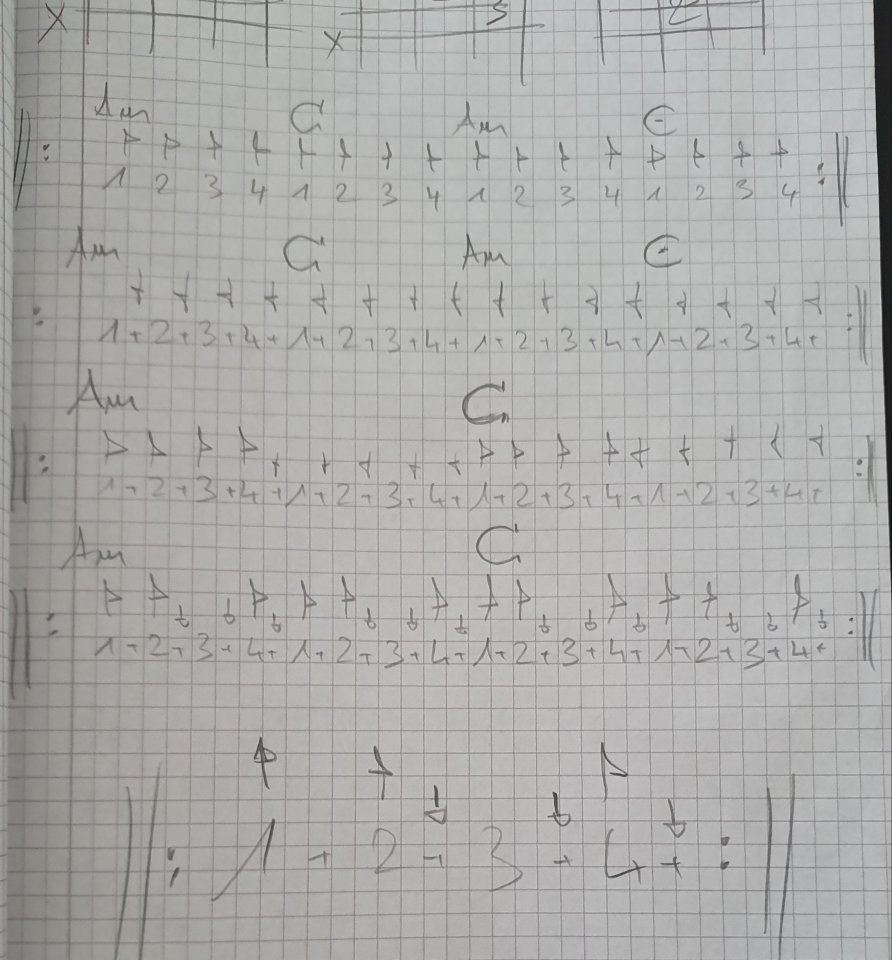 X 3 2
X
Am C Am E
||: 1 2 3 4 1 2 3 4 1 2 3 4 1 2 3 4 :||
Am C Am E
: 1 + 2 + 3 + 4 + 1 + 2 + 3 + 4 + 1 + 2 + 3 + 4 + 1 + 2 + 3 + 4 + :||
Am C
||: 1 + 2 + 3 + 4 + 1 + 2 + 3 + 4 + 1 + 2 + 3 + 4 + 1 + 2 + 3 + 4 + :||
Am C
||: 1 + 2 + 3 + 4 + 1 + 2 + 3 + 4 + 1 + 2 + 3 + 4 + 1 + 2 + 3 + 4 + :||
||: 1 + 2 + 3 + 4 + :||